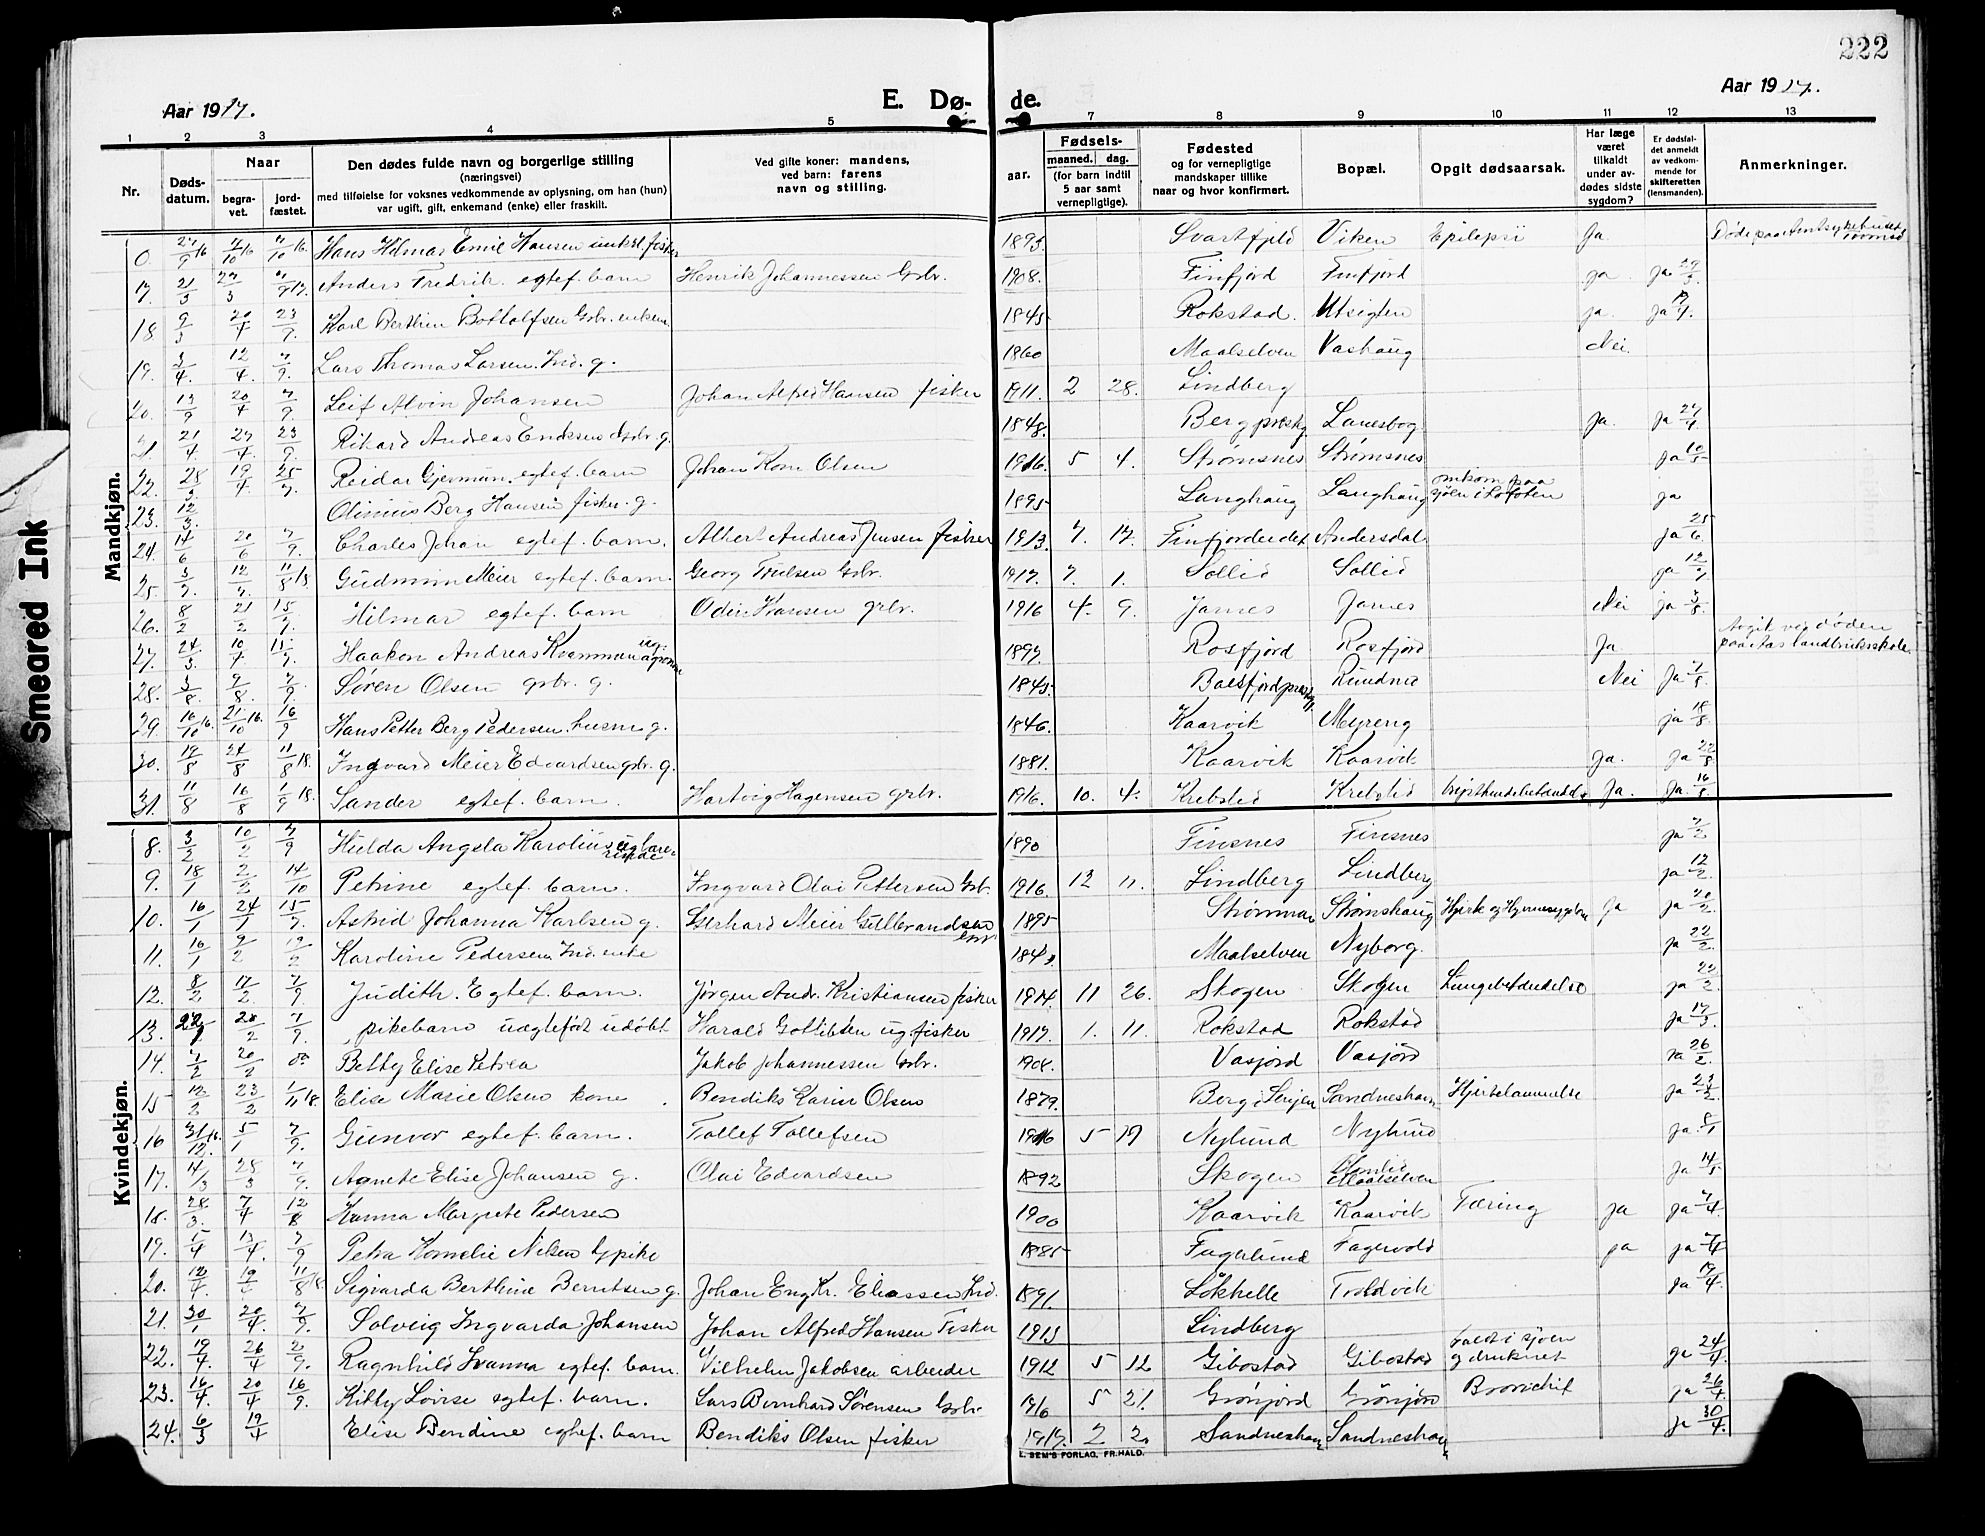 222
Aar 1917.
E. Dø- de.
Aar 1917.
1 2 3 4 5 7 8 9 10 11 12 13
Nr.
Døds-datum.
Naar
begra-vet.
jord-fæstet.
Den dødes fulde navn og borgerlige stilling
(næringsvei)
med tilføielse for voksnes vedkommende av oplysning, om han (hun)
var ugift, gift, enkemand (enke) eller fraskilt.
Ved gifte koner: mandens,
ved barn: farens
navn og stilling.
Fødsels-
aar.
maaned. dag.
(for barn indtil
5 aar samt
vernepligtige).
Fødested
og for vernepligtige
mandskaper tillike
naar og hvor konfirmert.
Bopæl.
Opgit dødsaarsak.
Har læge
været
tilkaldt
under av-
dødes sidste
sygdom?
Er dødsfal-
det anmeldt
av vedkom-
mende for
skifteretten
(lensmanden).
Anmerkninger.
Mandkjøn.
0. 27/9 16 7/10 16 7/10 16 Hans Hilmar Emil Hansen fisker 1893 Svartfjeld Viken Epilepsi Ja Døde paa Amtsykehuset Tromsø
17. 21/3 27/3 7/9 17. Anders Fredrik. egtef. barn Henrik Johannessen Gbr. 1908. Finfjord Finfjord ja ja 29/3.
18. 9/3 20/4 23/9. Karl Berthin Bottolfsen Gbr. enkem 1845 Rokstad. Utsigten ja. ja
19. 3/4. 12/4. 7/9. Lars Thomas Larsen. Ind. g. 1860 Maalselven Vashaug Nei.
20. 13/9 20/4 7/9. Leif Alvin Johansen Johan Alfred Hansen fisker 1911. 2 28. Lindberg
21. 21/4. 27/4. 23/9. Rikard Andreas Eriksen Gbr. g. 1848. Berg prestg. Lanesbog Ja. Ja 27/4
22. 28/3. 19/4. 25/7. Reidar Gjermun. egtef. barn Johan Kone Olsen 1916. 5 4. Strømsnes Strømsnes ja 10/5
23. 12/3. Olinius Berg Hansen fisker. g. 1895 Langhaug Langhaug omkom paa sjøen i Lofoten ja
24. 14/6 20/6 7/9. Charles Johan egtef. barn. Albert Andreas Jensen fisker 1913. 7. 17. Finfjordeidet Andersdal ja 25/6.
25. 3/7. 12/7. 11/8 18 Gudmun Meier egtef. barn. Georg Trulsen Gbr. 1917. 7. 1. Sollid Sollid ja 12/7
26. 8/2 21/2 15/7. Hilmar egtef. barn Odin Hansen grbr. 1916 4. 9. Jarnes Jarnes Nei ja 3/5.
27. 24/3. 10/4 15/7. Haakon Andreas Kvamman ug. agronom 1897. Rosfjord Rosfjord Ja. Avgik ved døden paa landbruksskole
28. 3/8. 9/8. 7/9 Søren Olsen grbr. g. 1845. Balsfjord prestg. Rundnes Nei Ja 7/8
29. 16/10 16. 21/10 16. 16/9 Hans Petter Berg Pedersen. husm. g. 1846. Kaarvik Myreng ja 18/8.
30. 19/8 24/8 11/8 18. Ingvard Meier Edvardsen gbr. g. 1881. Kaarvik Kaarvik Ja. Ja 22/8
31. 11/8 16/8 1/9 18. Sander egtef. barn. Hartvig Hagensen grbr. 1916. 10. 4. Krebslid Krebslid Ja. Ja. 16/8
Kvindekjøn.
8. 3/2 10/2 7/9 Hulda Angela Karolius ug lærerinde 1890 Finsnes Finsnes ja 7/2
9. 18/1 2/2 14/10 Petrine egtef. barn. Ingvard Olai Pettersen Gbr. 1916. 12 11. Lindberg Lindberg ja 12/2.
10. 16/1 24/1 15/7. Astrid Johanna Karlsen g. Gerhard Meier Gulbrandsen Gbr 1895 Strømmen Strømshaug Hjerte og Hjernesygdom Ja ja 20/2
11. 16/1 9/2 19/2 Karoline Pedersen Ind. enke 1843. Maalselven Nyborg. ja 22/2.
12. 8/2 17/2. 7/9 Judith. Egtef. barn. Jørgen Andr. Kristiansen fisker 1914. 11 26. Skogen Skogen Lungebetændelse ja 22/2
13. 20/2 7/9. pikebarn uegtefødt udøbt Harald Gottlibsen ug fisker 1917. 1. 11. Rokstad Rokstad ja 17/3.
14. 7/2 20/2 Betty Elise Petrea Jakob Johannessen Gbr. 1908. Vasjord Vasjord ja 26/2.
15 12/2 23/2 1/11 18. Elise Marie Olsen kone. Bendiks Karin Olsen 1879. Berg i Senjen Sandneshavn Hjertelammelse ja 23/2
16 31/12 16. 5/1 7/9. Gunvor egtef. barn. Tollef Tollefsen 1916 5 19 Nylund Nylund ja 8/1
17. 14/3 28/3 7/9. Agnete Elise Johansen g. Olai Edvardsen 1892 Skogen Maalselven Ja 14/5
18. 28/3. 7/4 12/8 Hanna Margrete Pedersen 1900 Kaarvik Kaarvik Tæring ja ja 7/4.
19. 5/4 13/4. 7/9 Petra Kornelie Nilsen pike 1885 Fagerlund Fagervold ja ja 7/4
20. 12/4. 19/4 11/8 18. Sigvarda Berthine Berntsen g. Johan Eng Kr. Eliassen Ind. 1891. Løkhelle Troldvik Ja 17/4.
21. 30/1 20/4. 7/9. Solveig Ingvarda Johansen Johan Alfred Hansen Fisker 1915 Lindberg
22. 19/4. 26/4 2/9. Ragnhild Ivanna egtef. barn. Vilhelm Jakobsen arbeider 1912 5 12 Gibostad Gibostad faldt i sjøen og druknet ja 24/4.
23. 16/4. 20/4 16/9. Kitty Lovise egtef. barn. Lars Bernhard Sørensen Gbr. 1916 5 21. Grønfjord Grønfjord ja 26/4.
24. 6/3 19/4 Elise Bendine egtef. barn Bendiks Olsen fisker 1917. 2 2. Sandneshavn Sandneshavn ja 30/4.
E. SEM'S FORLAG, FR.HALD.
Smeared Ink